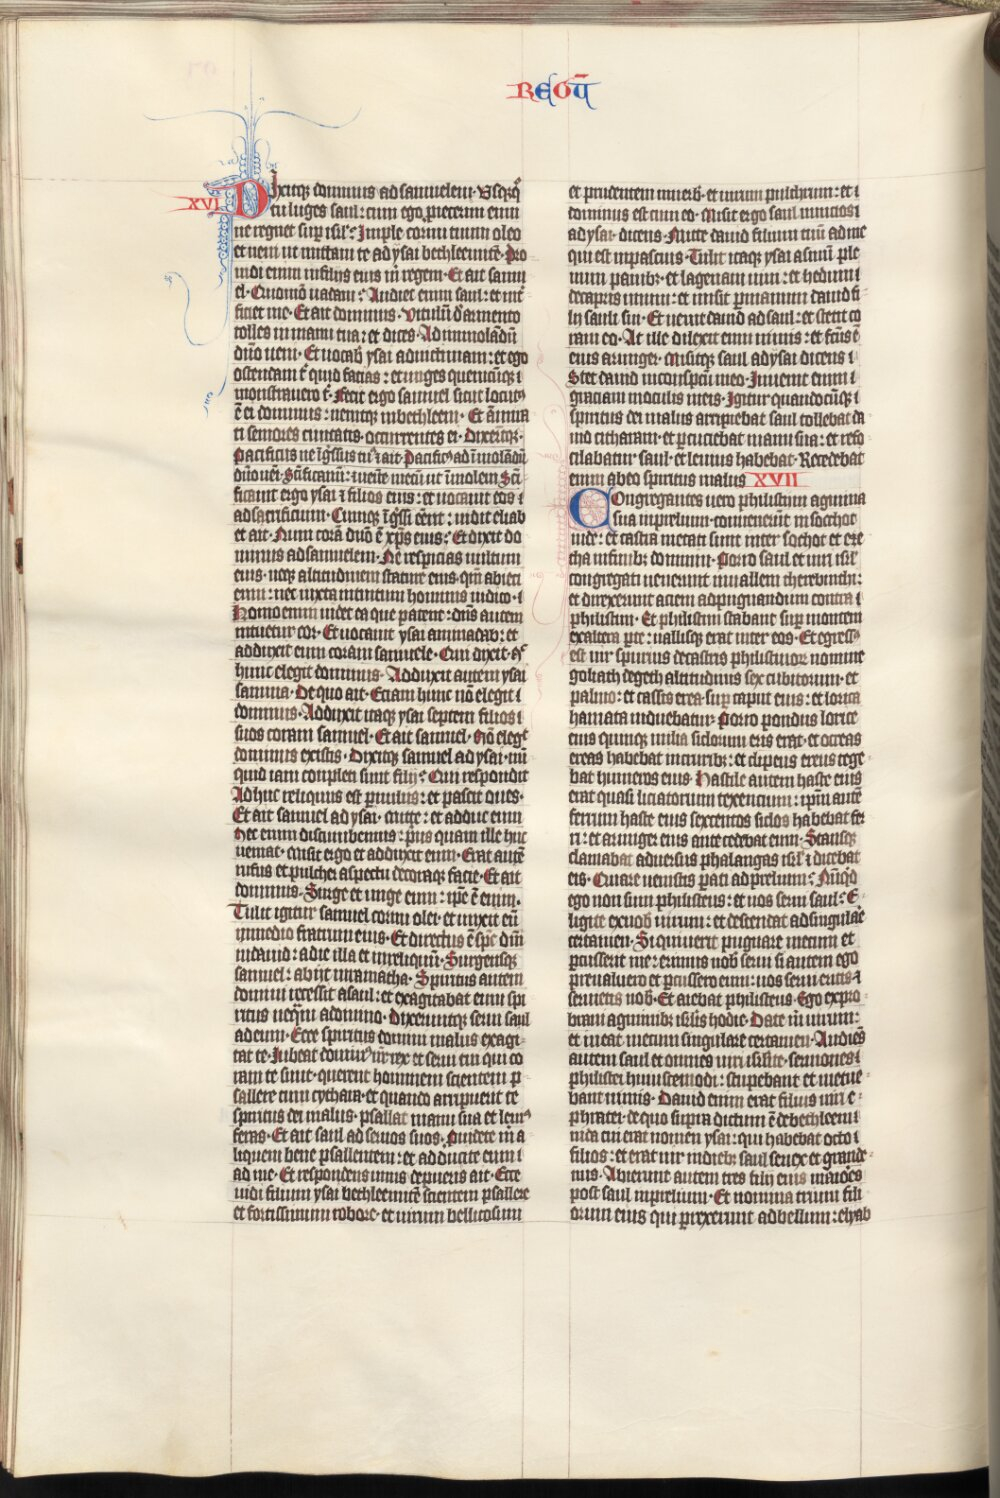 REGŨ
XVI
Dixitq; dominus ad samuelem· Usq;q°
tu luges saul: cum ego ꝓiecerim eum
ne regnet suꝑ isrl'? Imple cornu tuum oleo
et veni ut mittam te ad ysai bethleemitē· Pro
uidi enim in filijs eius m̄ regem· Et ait samu
el· Quomō vadam? Audiet enim saul: et int̄
ficiet me· Et ait dominus· Vitulū d' armento
tolles in manu tua: et dices· Ad immolādū
dn̄o veni· Et vocab' ysai ad victimam: et ego
ostendam t' quid facias: et unges quemcūq; i
monstrauero t'· Fecit ergo samuel sicut locut9
ē ei dominus: venitq; in bethleem· Et āmira
ti seniores ciuitatis· occurrentes ei· dixerūtq;·
Pacificus ne īgr̄ssus tu9? ait· Pacific9 ad īmolādū
dn̄o veī· Sc̄ificamī: ⁊ veīte mecū ut īmolem· Sc̄i
ficauit ergo ysai ⁊ filios eius: et vocauit eos i
ad sacrificium· Cumq; īgr̄ssi eēnt: vidit eliab
et ait· Num corā dn̄o ē xp̄s eius? Et dixit do
minus ad samuelem· Ne respicias vultum
eius· neq; altitudinem stature eius· qm̄ abieci
eum: nec iuxta intuitum hominis iudico· i
Homo enim videt ea que patent: dn̄s autem
intuetur cor· Et vocauit ysai aminadab: et
adduxit eum coram samuele· Qui dixit· Nec
hunc elegit dominus· Adduxit autem ysai
samma· De quo ait· Etiam hunc nō elegit i
dominus· Adduxit itaq; ysai septem filios i
suos coram samuel· Et ait samuel· Nō elegt
dominus ex istis· Dixitq; samuel ad ysai· nū
quid iam completi sunt filij? Qui respondit
Adhuc reliquus est ꝑuulus: et pascit oues·
Et ait samuel ad ysai· mitte: et adduc eum
Nec enim discumbemus: p̄us quam ille huc
veniat· misit ergo et adduxit eum· Erat autē
rufus et pulcher aspectu decoraq; facie· Et ait
dominus· Surge et unge eum: ip̄e ē enim·
Tulit igitur samuel cornu olei· et unxit eū
in medio fratrum eius· Et directus ē sp̄c dn̄i
in dauid: a die illa et in reliquū· Surgensq;
samuel: abijt in ramatha· Spiritus autem
domini recessit a saul: et exagitabat eum spi
ritus neq̄m a domino· Dixeruntq; serui saul
ad eum· Ecce spiritus domini malus exagi
tat te· Iubeat domin9 nr̄ rex et serui tui qui co
ram te sunt· querent hominem scientem p
sallere cum cythara· et quando arripuerit te
spiritus dei malus· psallat manu sua et leui9
feras· Et ait saul ad seruos suos· Prouidete m̄ a
liquem bene psallentem: et adducite eum i
ad me· Et respondens unus de pueris ait· Ecce
vidi filium ysai bethleemitē scientem psallere
et fortissimum robore· et virum bellicosum
et prudentem in verb'· et virum pulchrum: et i
dominus est cum eo· Misit ergo saul nuncios i
ad ysai· dicens· Mitte dauid filium tuū ad me
qui est in pascuis· Tulit itaq; ysai asinū ple
num panib;· et lagenam vini: et hedum i
de capris unum: et misit ꝑ manum dauid fi
lij sauli sui· Et venit dauid ad saul: et stetit co
ram eo· At ille dilexit eum nimis: et fc̄us ē
eius armiger· Misitq; saul ad ysai dicens i
Stet dauid in conspc̄u meo· Inuenit enim i
graciam in oculis meis· Igitur quandocūq; i
spiritus dei malus arripiebat saul· tollebat da
uid citharam· et ꝑcuciebat manu sua: et refo
cilabatur saul· et leuius habebat· Recedebat
enim ab eo spiritus malus XVII
Congregantes uero philistiim agmina
sua in prelium· conuenerūt in socchot
iude: et castra metati sunt inter sochot et aze
cha in finib; dommim· Porro saul et viri isrl'
congregati uenerunt in uallem therebinthi:
et direxerunt aciem ad pugnandum contra i
philistim· Et philistim stabant suꝑ montem
ex altera ꝑte: uallisq; erat inter eos· Et egress9
est vir spurius de castris philistinor̄ nomine
goliath de geth altitudinis sex cubitorum· et
palmo: et cassis erea suꝑ caput eius: et lorica
hamata induebatur· Porro pondus lorice
eius quinq; milia siclorum eris erat· et ocreas
ereas habebat in cruribz: et clipeus ereus tege
bat humeros eius· Hastile autem haste eius
erat quasi liciatorium texencium: ip̄m autē
ferrum haste eius sexcentos siclos habebat fer
ri: et armiger eius antecedebat eum· Stansq;
clamabat aduersus phalangas isrl' i dicebat
eis· Quare venistis ꝑati ad prelium? Nūq'd
ego non sum philisteus: et uos serui saul? E
ligite ex uob' virum: et descendat ad singulare
certamen· Si quiuerit pugnare mecum et
ꝑcusserit me: erimus uob' serui si autem ego
preualuero et ꝑcussero eum: uos serui eritis ⁊
seruietis nob'· Et aiebat philisteus· Ego expro
braui agminib; isrl'is hodie· Date m̄ virum:
et ineat mecum singulare certamen· Audiēs
autem saul et omnes viri isrl'ite· sermones i
philistei huiuscemodi: stupebant et metue
bant nimis· Dauid enim erat filius viri e
phratei· de quo supra dictum ē de bethleem i
iuda cui erat nomen ysai: qui habebat octo i
filios: et erat vir in dieb; saul senex et grande
uus· Abierunt autem tres filij eius maiores
post saul in prelium· Et nomina trium fili
orum eius qui ꝑrexerunt ad bellum: elyab